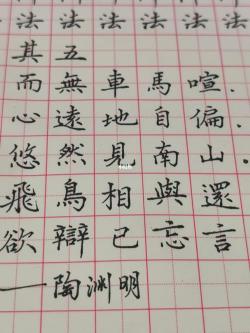 法法法法法法
其五
而無車馬喧.
心遠地自偏.
悠然見南山.
飛鳥相與還
欲辯已忘言
—陶淵明